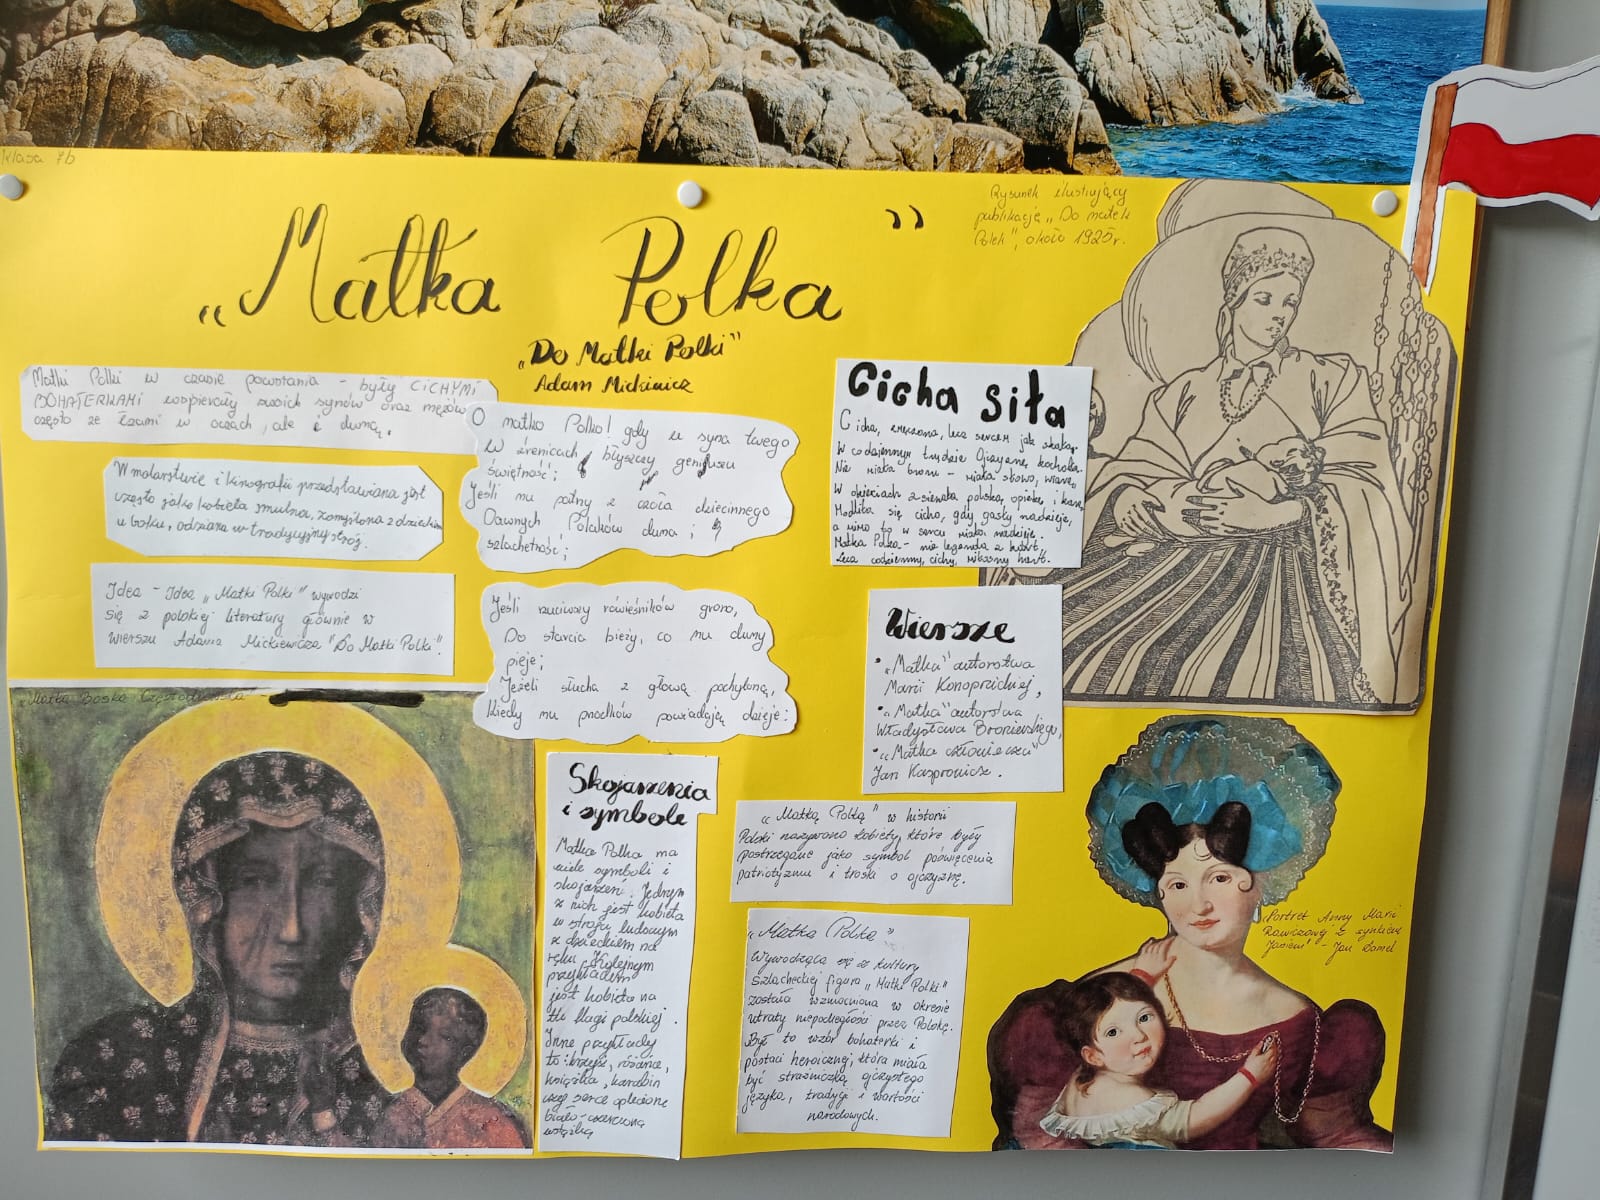 klasa 7b
„Matka Polka”
„Do Matki Polki”
Adam Mickiewicz
Rysunek ilustrujący
publikację „Do matek
Polek”, około 1925r.
Matki Polki w czasie powstania - były CICHYMI
BOHATERKAMI wspierały swoich synów oraz mężów
często ze łzami w oczach, ale i dumą.
W malarstwie i kinografii przedstawiana jest
często jako kobieta smutna, zamyślona z dzieckiem
u boku, odziana w tradycyjny strój.
Idea - Idea „Matki Polki" wywodzi
się z polskiej literatury głównie w
wierszu Adama Mickiewicza "Do Matki Polki".
O matko Polko! gdy u syna twego
W źrenicach błyszczy geniuszu
świętność;
Jeśli mu patrzy z czoła dziecinnego
Dawnych Polaków duma;
szlachetność;
Jeśli rzuciwszy rówieśników grono,
Do starca bieży, co mu dumy
pieje;
Jeżeli słucha z głową pochyloną,
Kiedy mu przodków powiadają dzieje:
Cicha siła
Cicha, zmęczona, lecz sercem jak skała,
W codziennym trudzie Ojczyznę kochała.
Nie miała broni - miała słowo, wiarę,
W objęciach zsiewała polską, opiekę i karę,
Modliła się cicho, gdy gasły nadzieje,
a mimo to w sercu miała nadzieję.
Matka Polka - nie legenda z kart
Lecz codzienny, cichy, miłosny hart.
Wiersze
• „Matka" autorstwa
Marii Konopnickiej,
• „Matka" autorstwa
Władysława Broniewskiego,
• „Matka człowiecza"
Jan Kasprowicz.
„Matka Boska Częstochowska
Skojarzenia
i symbole
Matka Polka ma
wiele symboli i
skojarzeń. Jednym
z nich jest kobieta
w stroju ludowym
z dzieckiem na
ręku. Kolejnym
przykładem
jest kobieta na
tle flagi polskiej.
Inne przykłady
to: krzyż, różaniec,
książka, karabin
oraz serce oplecione
biało-czerwoną
wstążką
„Matką Polką" w historii
Polski nazywano kobiety, które były
postrzegane jako symbol poświęcenia
patriotyzmu i troski o ojczyznę.
„Matka Polka"
Wywodząca się z kultury
szlacheckiej figura „Matki Polki"
została wzmocniona w okresie
utraty niepodległości przez Polskę.
Był to wzór bohaterki i
postaci heroicznej, która miała
być strażniczką ojczystego
języka, tradycji i wartości
narodowych.
„Portret Anny Marii
Rawiczowej z synkiem
Jasiem" - Jan Damel